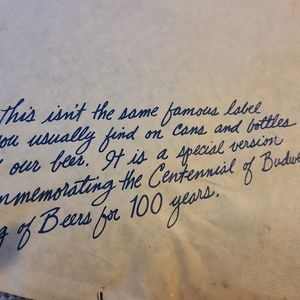 This isn't the same famous label
you usually find on cans and bottles
our beer. It is a special version
mmemorating the Centennial of Budwe
g of Beers for 100 years.